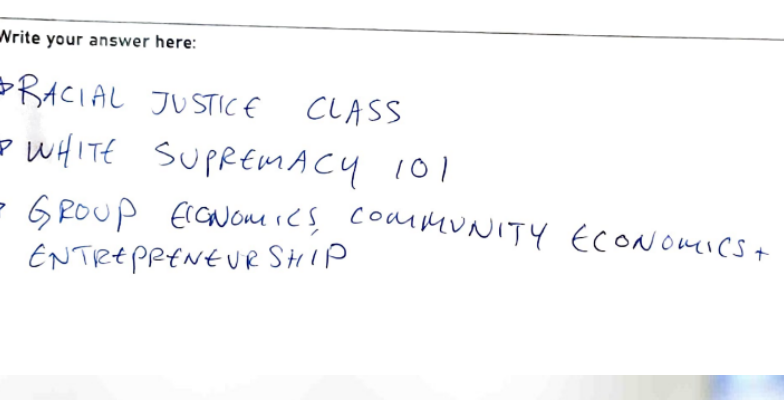 Write your answer here:
RACIAL JUSTICE CLASS
WHITE SUPREMACY 101
GROUP ECONOMICS, COMMUNITY ECONOMICS +
ENTREPRENEURSHIP